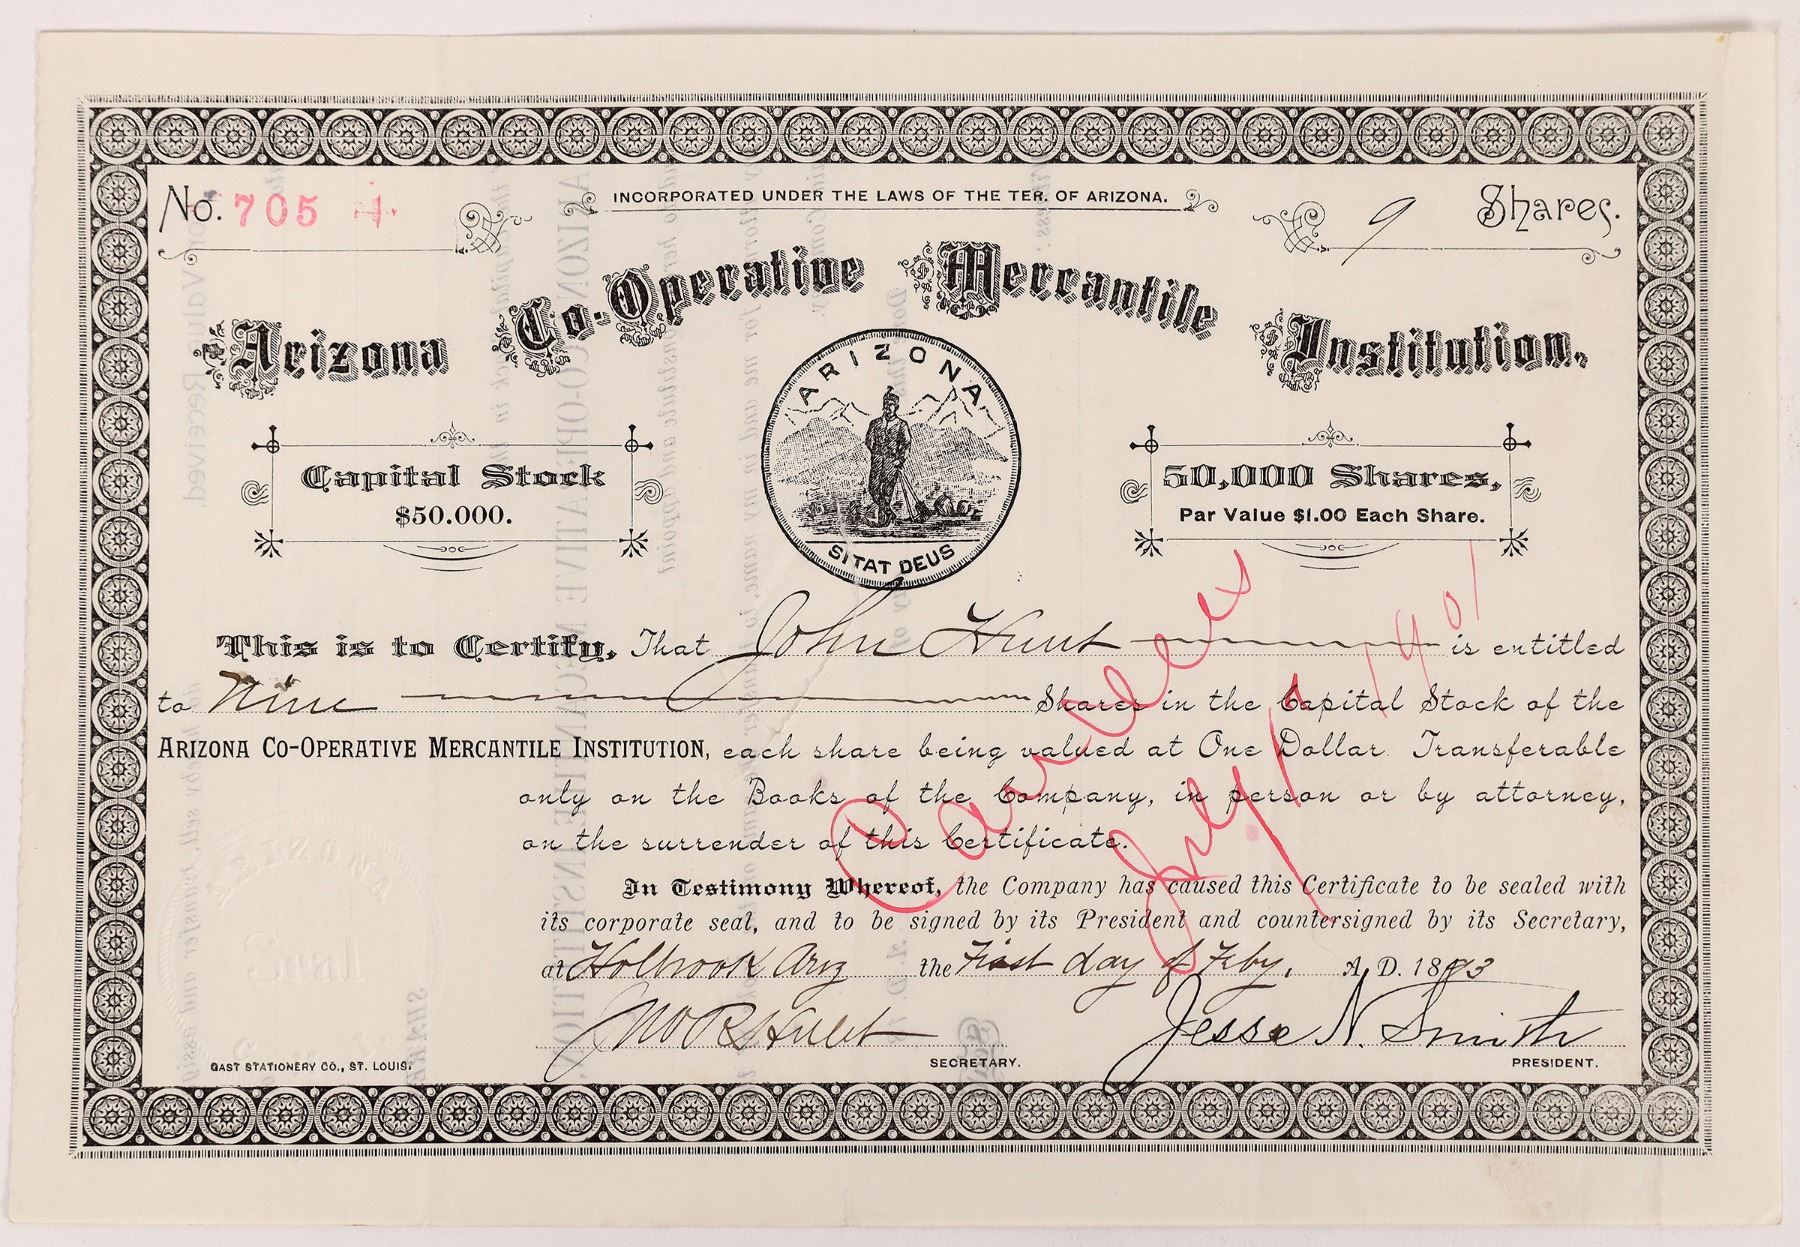 No. 705
INCORPORATED UNDER THE LAWS OF THE TER. OF ARIZONA.
9 Shares.
Arizona Co-Operative Mercantile Institution.
ARIZONA
SITAT DEUS
Capital Stock
$50.000.
50,000 Shares,
Par Value $1.00 Each Share.
This is to Certify, That John Hunt is entitled
to Nine Shares in the Capital Stock of the
ARIZONA CO-OPERATIVE MERCANTILE INSTITUTION, each share being valued at One Dollar. Transferable
only on the Books of the Company, in person or by attorney,
on the surrender of this Certificate.
In Testimony Whereof, the Company has caused this Certificate to be sealed with
its corporate seal, and to be signed by its President and countersigned by its Secretary,
at Holbrook Ariz the First day of Feby, A.D. 1893
Jno R Hulet
Jesse N. Smith
SECRETARY.
PRESIDENT.
GAST STATIONERY CO., ST. LOUIS.
ARIZONA
Seal
July 1901